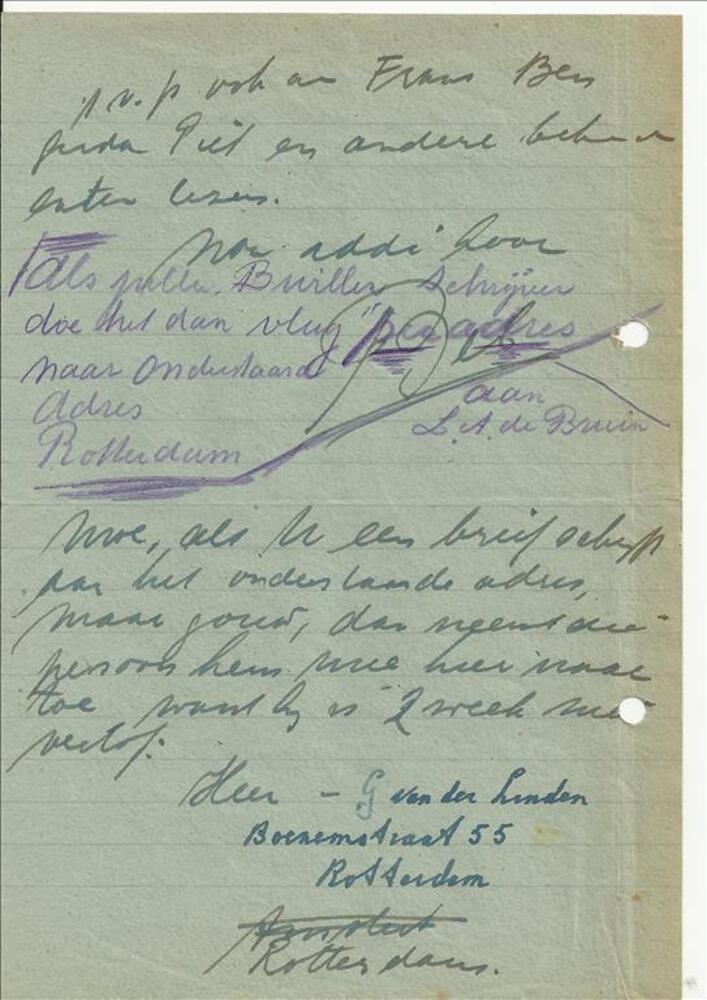 s.v.p ook aan Frans Ben
Piet en andere
laten lezen.
Nou addi hoor
Als jullie Brullen Schrijven
doe het dan vlug per adres
naar Onderstaand
Adres
aan
L.A. de Bruin
Rotterdam
Moe, als U een breif schrijft
aan het onderstaande adres,
maar gouw, dan neemt die
persoon hem mee hier naar
toe want hij is 2 week met
verlof.
Heer - G van der Linden
Boenemstraat 55
Rotterdam
Rotterdam.